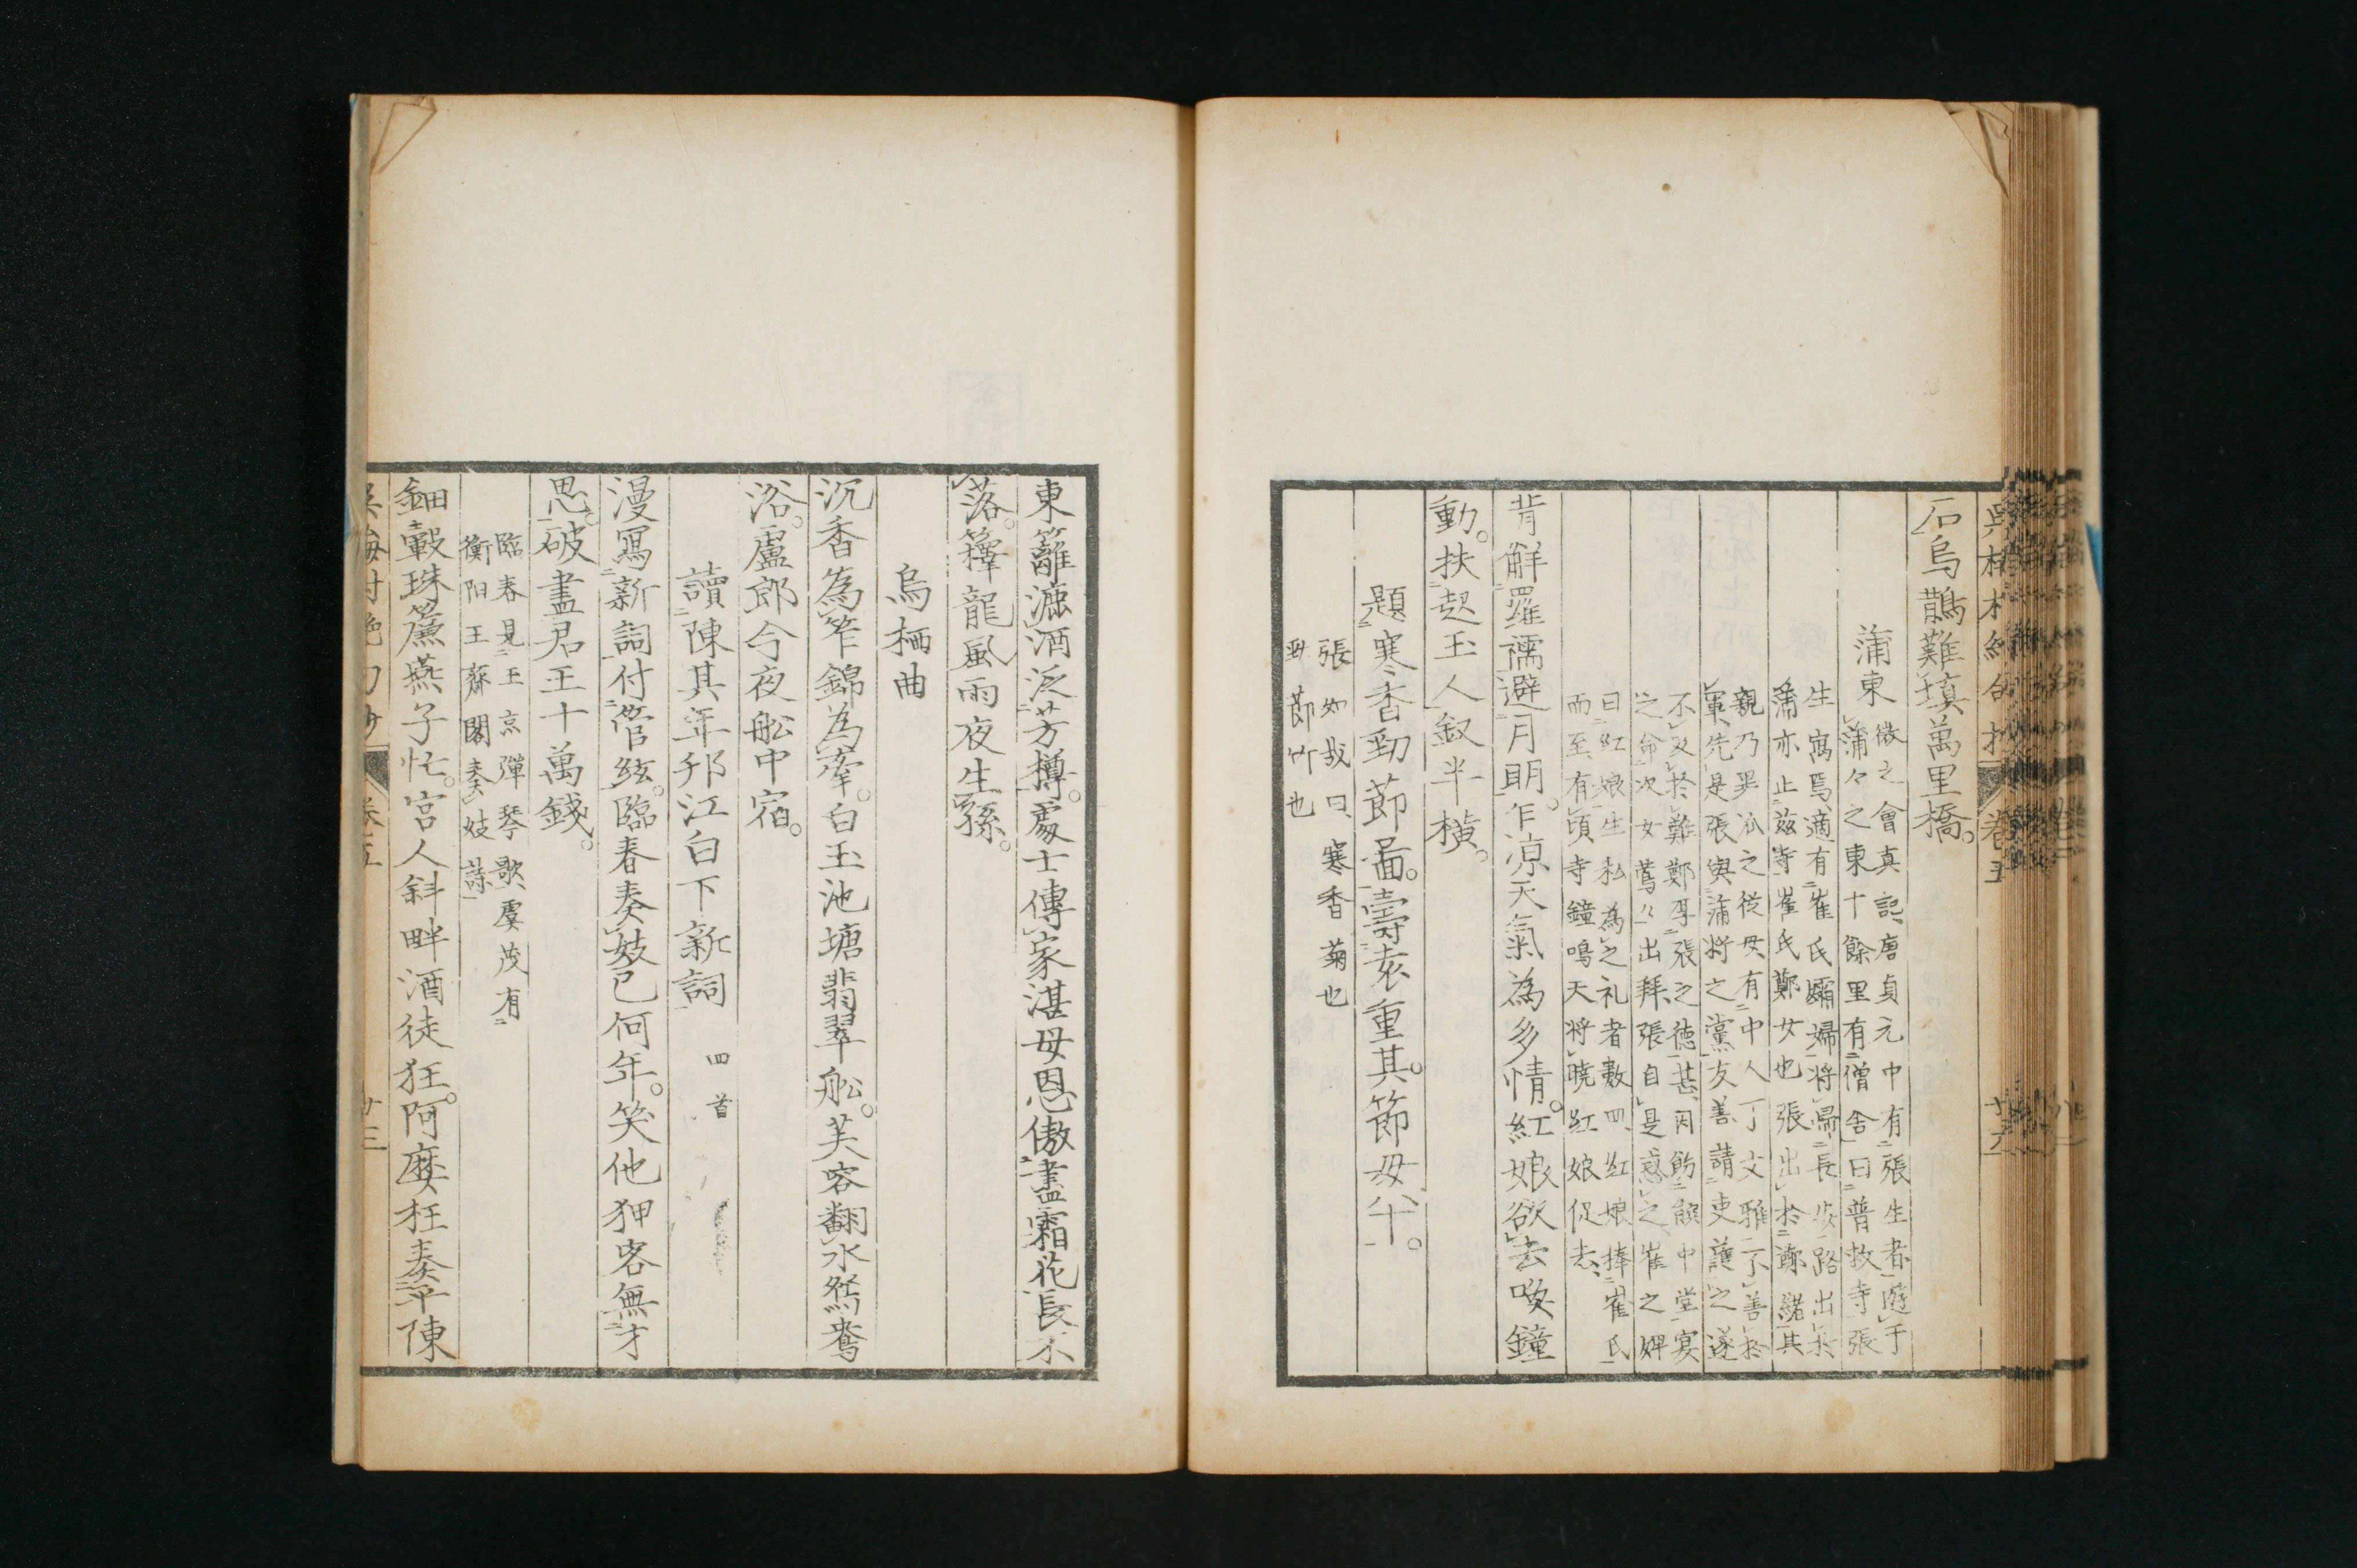 石烏鵲難塡萬里橋
蒲東
微之會真記唐貞元中有張生者遊于
蒲々之東十餘里有僧舍曰普救寺張
生寓焉適有崔氏孀婦将歸長安路出於
蒲亦止茲寺崔氏鄭女也張出於鄭緒其
親乃異派之從母有中人丁文雅不善於
軍先是張與蒲将之黨友善請吏護之遂
不及於難鄭厚張之德甚因飭饌中堂宴
之命次女鶯々出拜張自是惑之崔之婢
曰紅娘生私為之礼者數四紅娘捧崔氏
而至有頃寺鐘鳴天将曉紅娘促去
背觧羅襦避月明乍凉天氣為多情紅娘欲去喚鐘
動扶起玉人釵半橫
題寒香勁節啚壽袁重其節母八十
張如哉曰寒香菊也
勁節竹也
東籬漉酒泛芳樽處士傳家湛母恩傲盡霜花長不
落籜龍風雨夜生孫
烏栖曲
沉香為笮錦為牽白玉池塘翡翠舩芙容翻水鴛鴦
浴盧郎今夜舩中宿
讀陳其年邗江白下新詞 四首
漫寫新詞付管絃臨春奏妓已何年笑他狎客無才
思破盡君王十萬錢
臨春見王京彈琴歌虞茂有
衡阳王齋閣奏妓詩
鈿轂珠簾燕子忙宮人斜畔酒徒狂阿𡡉枉奏平陳